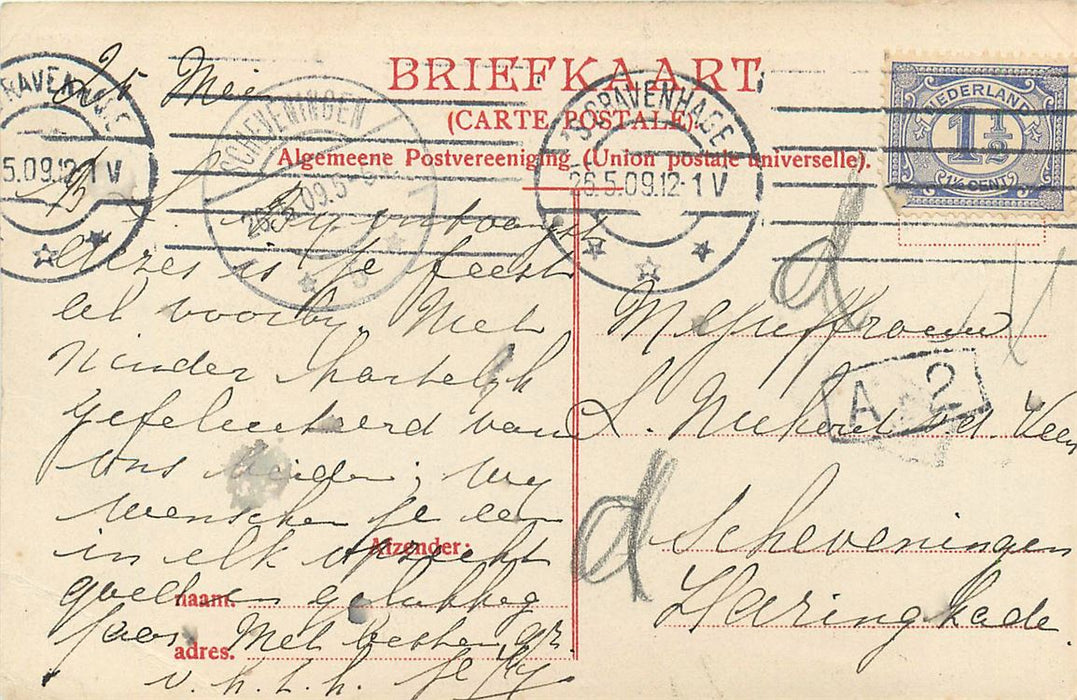 25 Mei
BRIEFKAART
(CARTE POSTALE)
Algemeene Postvereeniging (Union postale universelle).
RAVENHAGE
5.09.12-1V
SCHEVENINGEN
26.5.09.5-
'S GRAVENHAGE
26.5.09.12-1V
NEDERLAND
1½
1½ CENT
L. By ontvangst
dezes is je feest
al voorby. Niet
minder hartelyk
gefeliciteerd van
ons beiden; wy
wenschen je een
in elk opzicht
goed en gelukkig
jaar. Met besten gr.
v. h. t. h. je
Afzender:
naam.
adres.
Mejuffrouw
A 2
L. v.d. Veen
Scheveningen
Haringkade.
d
d